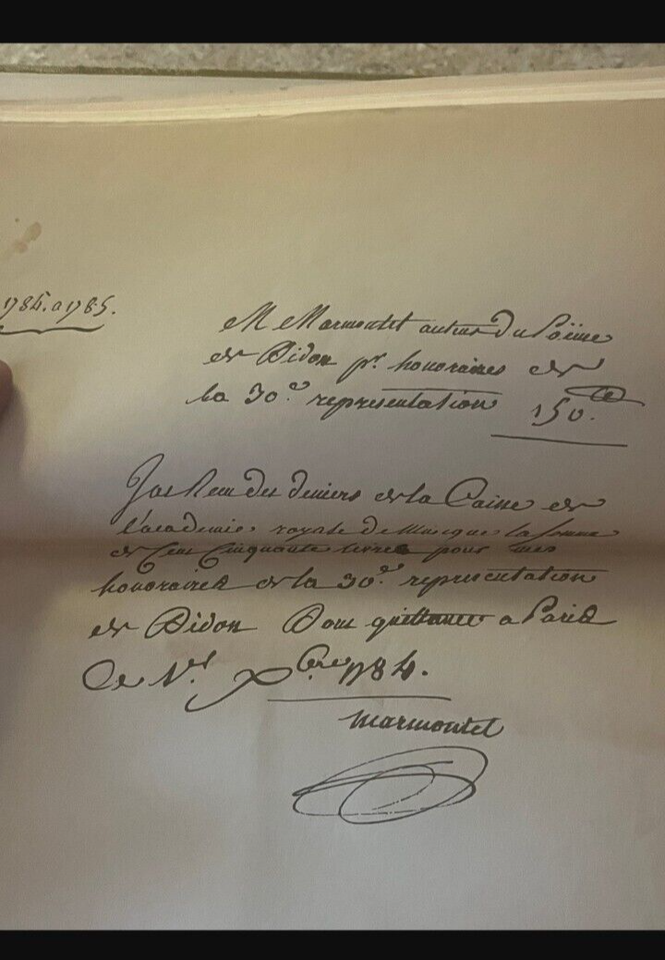 1784. a 1785.
M Marmontel auteur du Poëme
de Didon pr. honoraires de
la 30.e representation 150.
J'ai Recu des deniers de la Caisse de
l'academie royale de Musique la somme
de Cent Cinquante livres pour mes
honoraires de la 30.e representation
de Didon Dont quittance a Paris
Ce Xbre 1784.
Marmontel